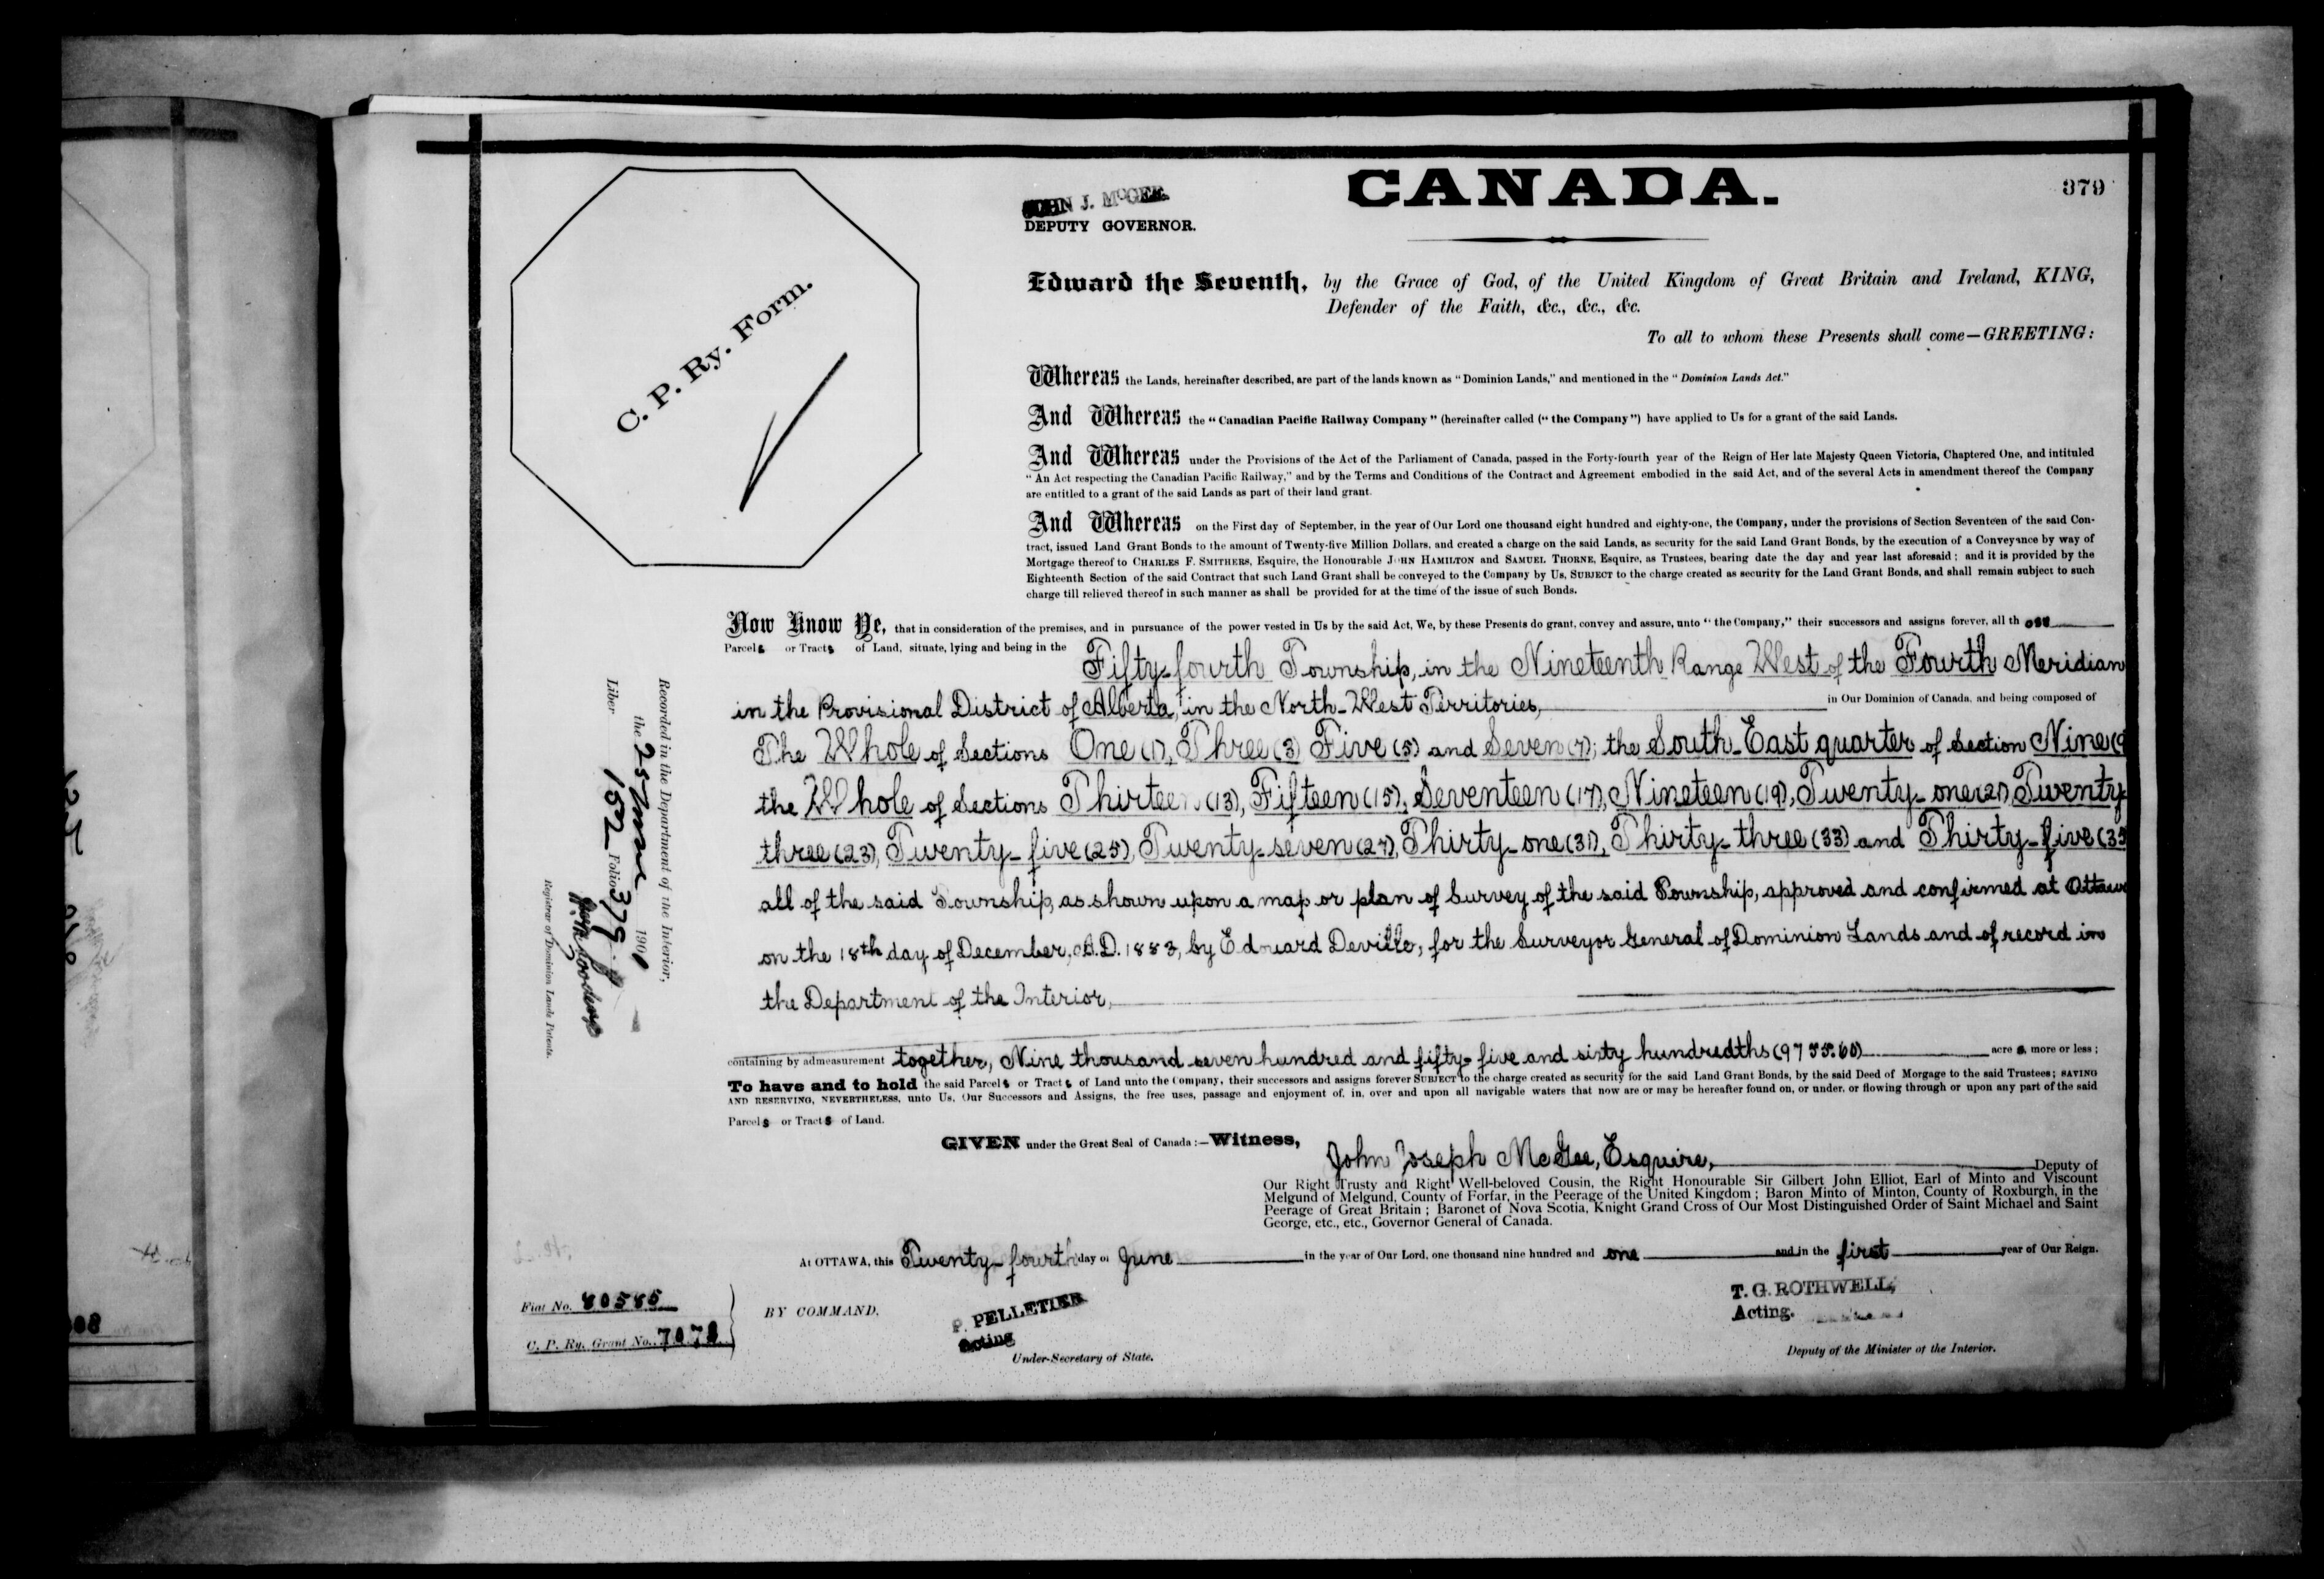 JOHN J. McGEE.
DEPUTY GOVERNOR.
CANADA.
379
C. P. Ry. Form.
Edward the Seventh, by the Grace of God, of the United Kingdom of Great Britain and Ireland, KING,
Defender of the Faith, &c., &c., &c.
To all to whom these Presents shall come—GREETING:
Whereas the Lands, hereinafter described, are part of the lands known as "Dominion Lands," and mentioned in the "Dominion Lands Act."
And Whereas the "Canadian Pacific Railway Company" (hereinafter called ("the Company") have applied to Us for a grant of the said Lands.
And Whereas under the Provisions of the Act of the Parliament of Canada, passed in the Forty-fourth year of the Reign of Her late Majesty Queen Victoria, Chaptered One, and intituled
"An Act respecting the Canadian Pacific Railway," and by the Terms and Conditions of the Contract and Agreement embodied in the said Act, and of the several Acts in amendment thereof the Company
are entitled to a grant of the said Lands as part of their land grant.
And Whereas on the First day of September, in the year of Our Lord one thousand eight hundred and eighty-one, the Company, under the provisions of Section Seventeen of the said Con-
tract, issued Land Grant Bonds to the amount of Twenty-five Million Dollars, and created a charge on the said Lands, as security for the said Land Grant Bonds, by the execution of a Conveyance by way of
Mortgage thereof to CHARLES F. SMITHERS, Esquire, the Honourable JOHN HAMILTON and SAMUEL THORNE, Esquire, as Trustees, bearing date the day and year last aforesaid; and it is provided by the
Eighteenth Section of the said Contract that such Land Grant shall be conveyed to the Company by Us, SUBJECT to the charge created as security for the Land Grant Bonds, and shall remain subject to such
charge till relieved thereof in such manner as shall be provided for at the time of the issue of such Bonds.
Now Know Ye, that in consideration of the premises, and in pursuance of the power vested in Us by the said Act, We, by these Presents do grant, convey and assure, unto "the Company," their successors and assigns forever, all those
Parcels or Tracts of Land, situate, lying and being in the Fifty-fourth Township, in the Nineteenth Range West of the Fourth Meridian
in the Provisional District of Alberta, in the North-West Territories, in Our Dominion of Canada, and being composed of
The Whole of Sections One (1), Three (3) Five (5) and Seven (7); the South-East quarter of Section Nine (9
the Whole of Sections Thirteen (13), Fifteen (15), Seventeen (17), Nineteen (19), Twenty-one (21) Twenty
three (23), Twenty-five (25), Twenty-seven (27), Thirty-one (31), Thirty-three (33) and Thirty-five (35
all of the said Township, as shown upon a map or plan of Survey of the said Township, approved and confirmed at Ottawa
on the 18th day of December, A.D. 1883, by Edouard Deville, for the Surveyor General of Dominion Lands and of record in
the Department of the Interior,
containing by admeasurement together, Nine thousand seven hundred and fifty-five and sixty hundredths (9755.60) acres, more or less;
To have and to hold the said Parcels or Tracts of Land unto the Company, their successors and assigns forever SUBJECT to the charge created as security for the said Land Grant Bonds, by the said Deed of Morgage to the said Trustees; SAVING
AND RESERVING, NEVERTHELESS, unto Us, Our Successors and Assigns, the free uses, passage and enjoyment of, in, over and upon all navigable waters that now are or may be hereafter found on, or under, or flowing through or upon any part of the said
Parcels or Tracts of Land.
GIVEN under the Great Seal of Canada:—Witness, John Joseph McGee, Esquire, Deputy of
Our Right Trusty and Right Well-beloved Cousin, the Right Honourable Sir Gilbert John Elliot, Earl of Minto and Viscount
Melgund of Melgund, County of Forfar, in the Peerage of the United Kingdom; Baron Minto of Minton, County of Roxburgh, in the
Peerage of Great Britain; Baronet of Nova Scotia, Knight Grand Cross of Our Most Distinguished Order of Saint Michael and Saint
George, etc., etc., Governor General of Canada.
At OTTAWA, this Twenty-fourth day of June in the year of Our Lord, one thousand nine hundred and one and in the first year of Our Reign.
BY COMMAND,
P. PELLETIER
Acting
Under-Secretary of State.
T. G. ROTHWELL,
Acting.
Deputy of the Minister of the Interior.
Fiat No. 80585
C. P. Ry. Grant No. 7078
Recorded in the Department of the Interior,
the 25 June 1901
Liber 152 Folio 379
Registrar of Dominion Lands Patents.